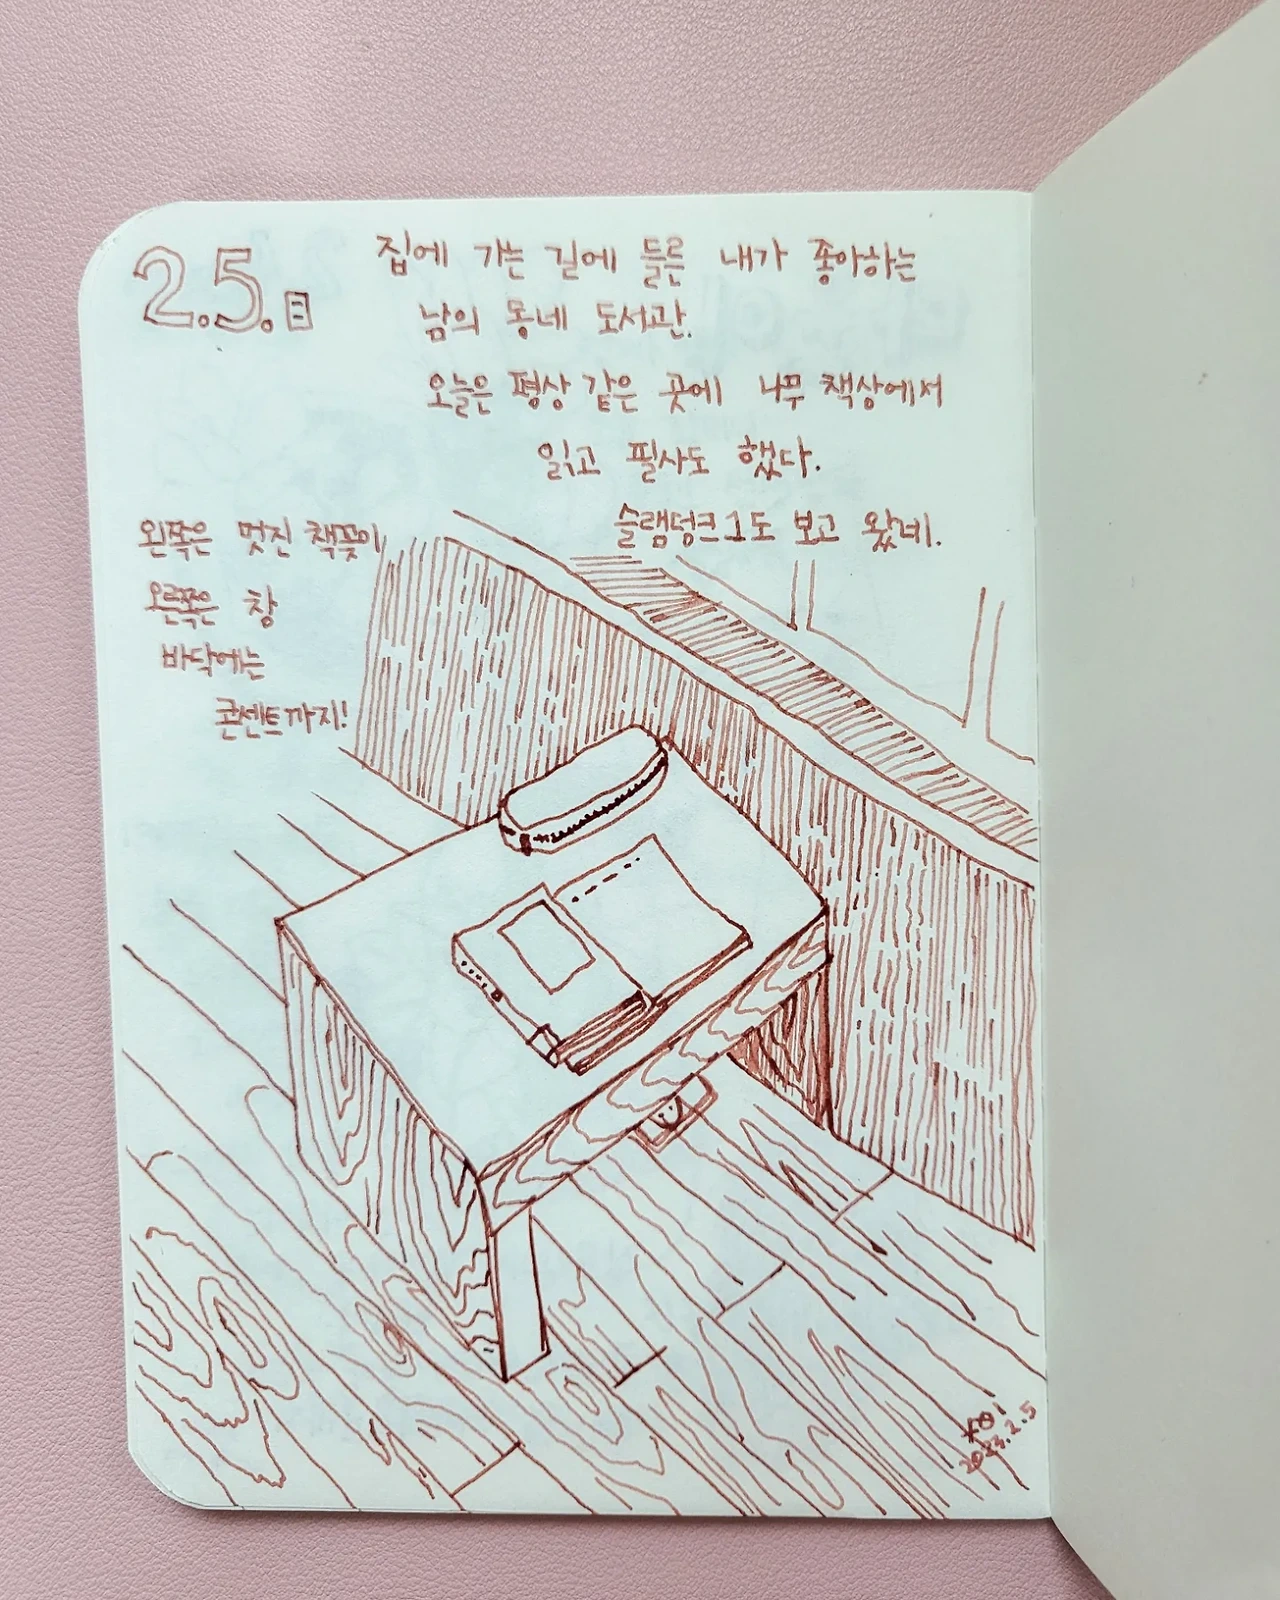 2.5.日
집에 가는 길에 들른 내가 좋아하는
남의 동네 도서관.
오늘은 평상 같은 곳에 나무 책상에서
읽고 필사도 했다.
슬램덩크1도 보고 왔네.
왼쪽은 멋진 책꽂이
오른쪽은 창
바닥에는
콘센트까지!
2023.2.5